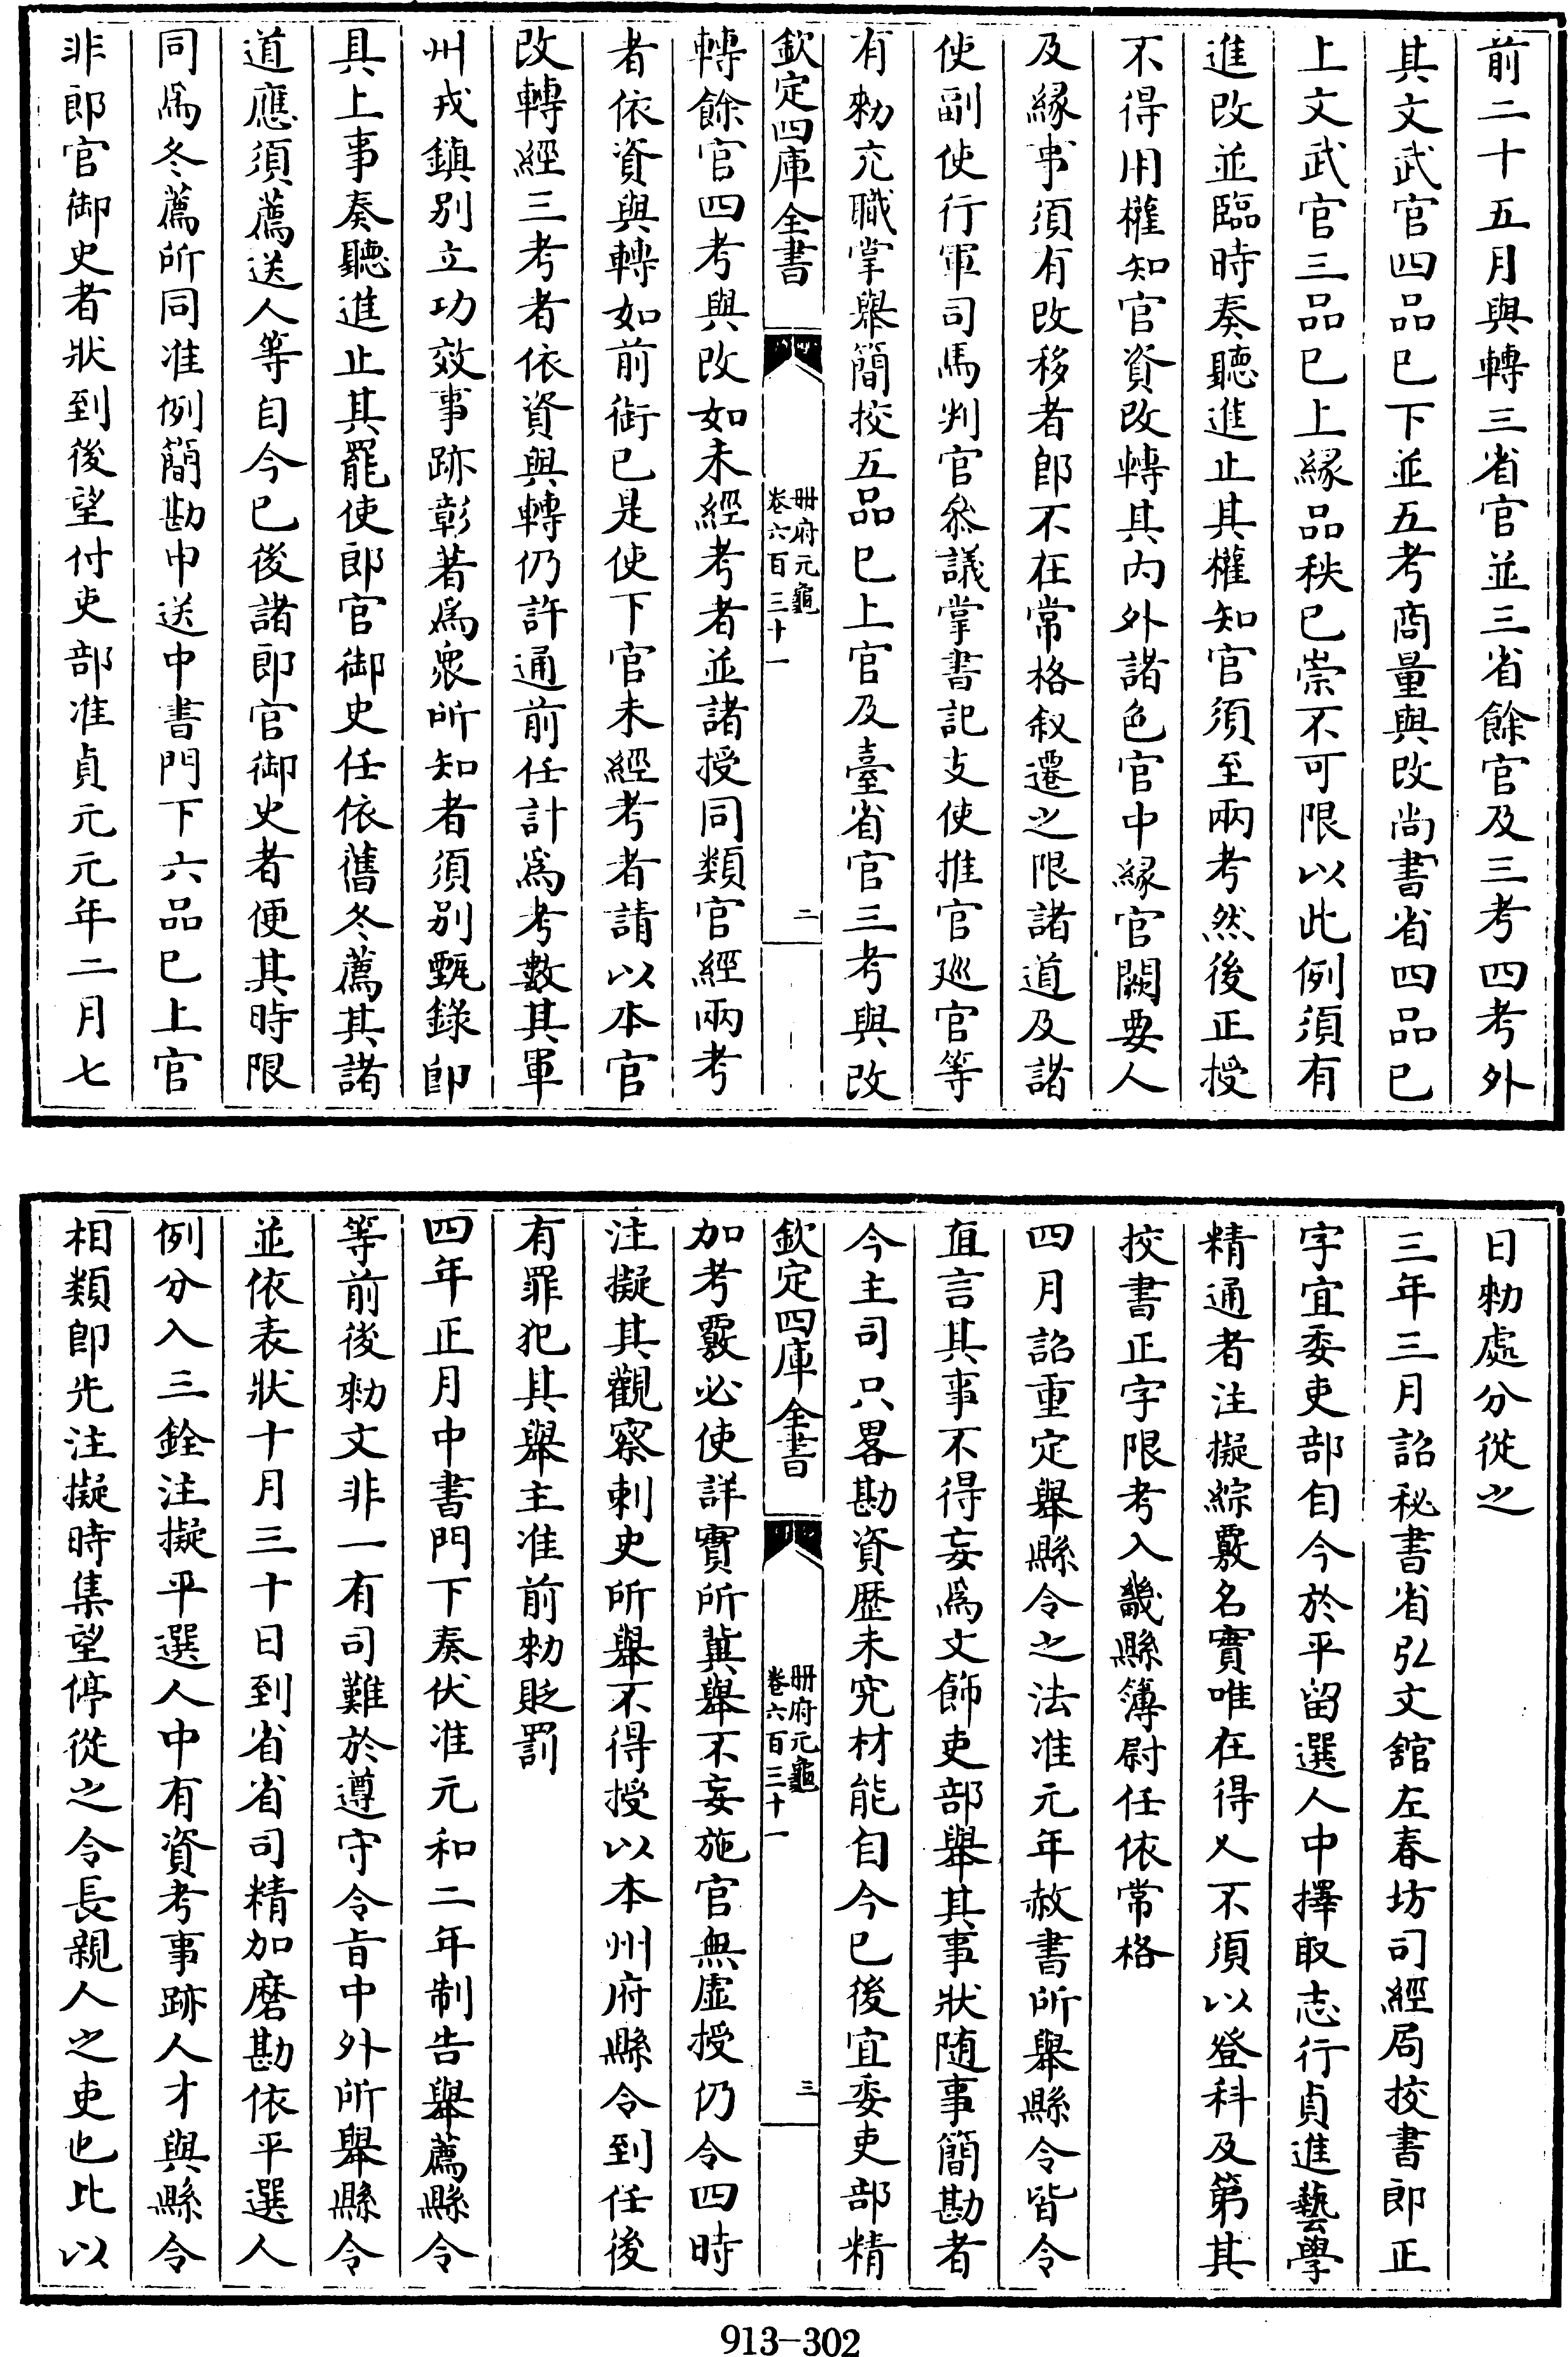 前二十五月與轉三省官並三省餘官及三考四考外
其文武官四品已下並五考商量與改尚書省四品已
上文武官三品已上緣品秩已崇不可限以此例須有
進改並臨時奏聽進止其權知官須至兩考然後正授
不得用權知官資改轉其內外諸色官中緣官闕要人
及緣事須有改移者即不在常格叙遷之限諸道及諸
使副使行軍司馬判官叅議掌書記支使推官廵官等
有勅充職掌舉簡挍五品已上官及臺省官三考與改
欽定四庫全書
冊府元龜
卷六百三十一
二
轉餘官四考與改如未經考者並諸授同類官經兩考
者依資與轉如前銜已是使下官未經考者請以本官
改轉經三考者依資與轉仍許通前任計爲考數其軍
州戎鎮別立功效事跡彰著爲衆所知者須別甄錄即
具上事奏聽進止其罷使郎官御史任依舊冬薦其諸
道應須薦送人等自今已後諸郎官御史者便其時限
同爲冬薦所同准例簡勘申送中書門下六品已上官
非郎官御史者狀到後望付吏部准貞元元年二月七
日勅處分從之
三年三月詔秘書省弘文舘左春坊司經局挍書郎正
字宜委吏部自今於平留選人中擇取志行貞進藝學
精通者注擬綜覈名實唯在得人不須以登科及第其
挍書正字限考入畿縣簿尉任依常格
四月詔重定舉縣令之法准元年赦書所舉縣令皆令
直言其事不得妄爲文飾吏部舉其事狀随事簡勘者
今主司只畧勘資歴未究材能自今已後宜委吏部精
欽定四庫全書
冊府元龜
卷六百三十一
三
加考覈必使詳實所冀舉不妄施官無虛授仍令四時
注擬其觀察刺史所舉不得授以本州府縣令到任後
有罪犯其舉主准前勅貶罰
四年正月中書門下奏伏准元和二年制告舉薦縣令
等前後勅文非一有司難於遵守令旨中外所舉縣令
並依表狀十月三十日到省省司精加磨勘依平選人
例分入三銓注擬平選人中有資考事跡人才與縣令
相類即先注擬時集望停從之令長親人之吏也比以
913-302